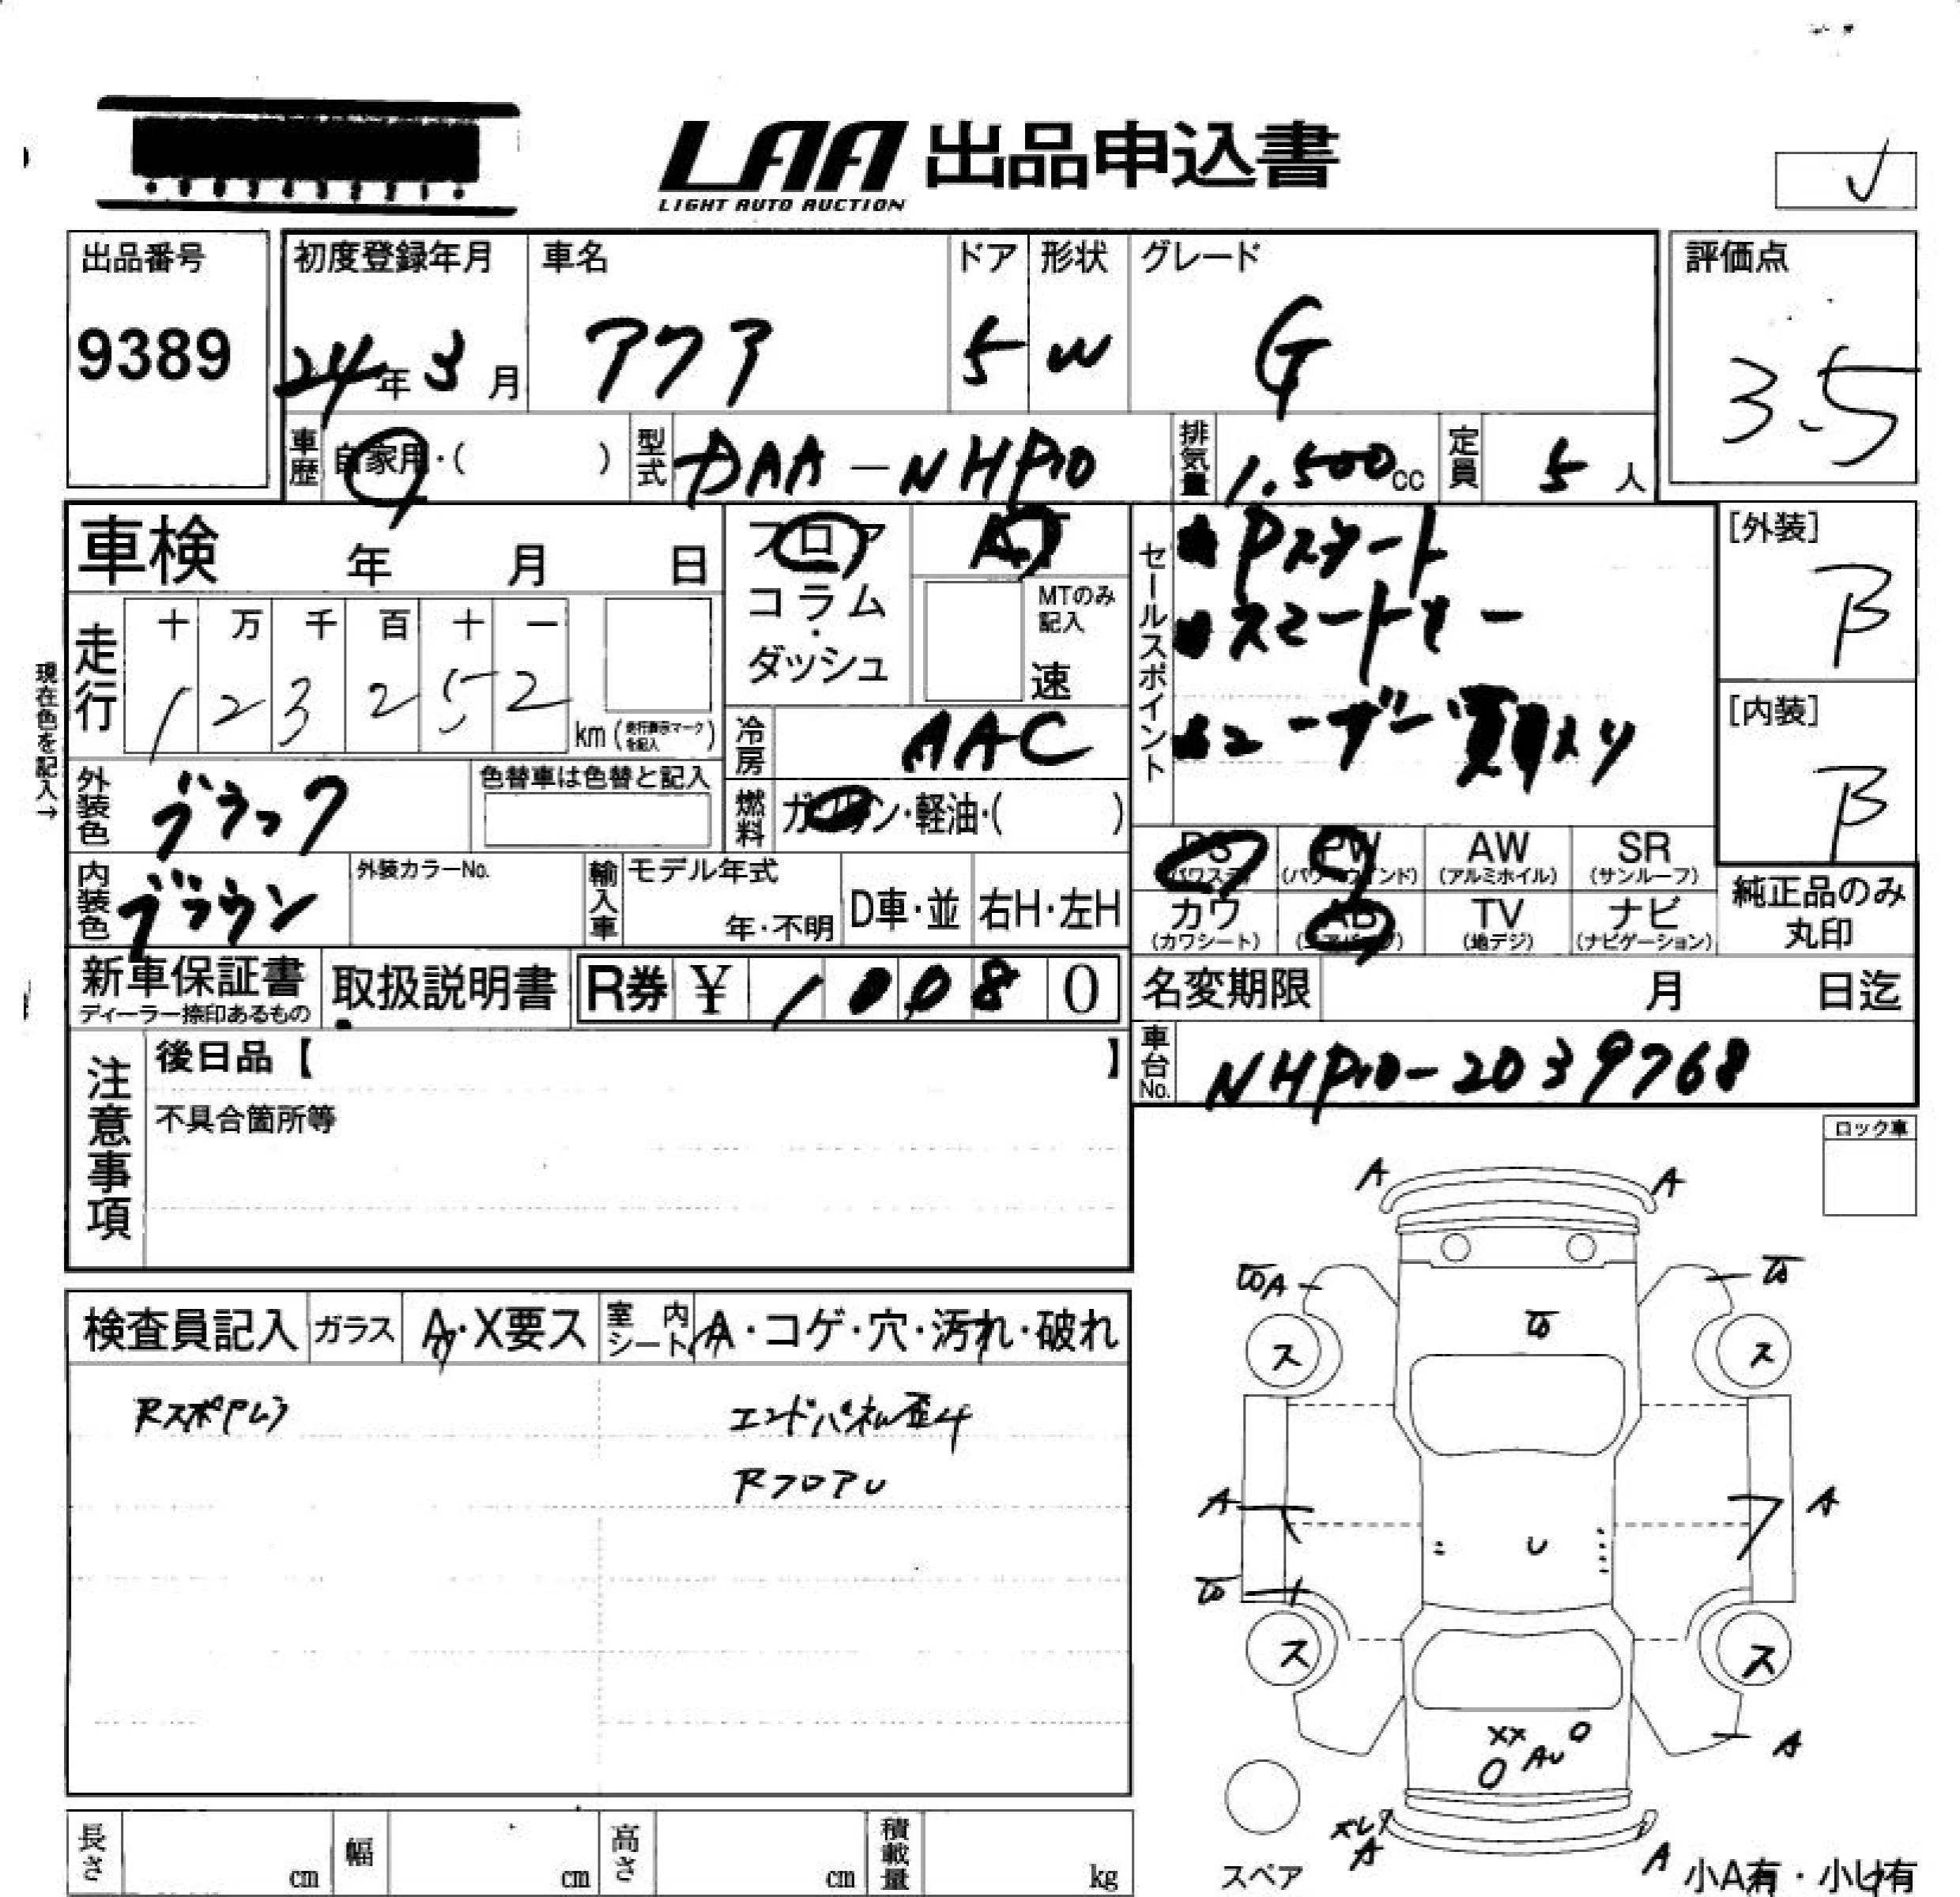 LAA 出品申込書
LIGHT AUTO AUCTION
出品番号
9389
初度登録年月
24年3月
車名
アクア
ドア
5
形状
W
グレード
G
評価点
3.5
車歴
自家用・( )
型式
DAA-NHP10
排気量
1.500cc
定員
5人
車検 年 月 日
フロア
コラム・
ダッシュ
AT
MTのみ
記入
速
セールスポイント
Pスタート
スマートキー
ユーザー買取り
[外装]
B
[内装]
B
走行
十 万 千 百 十 一
1 2 3 2 5 2
km (走行表示マークを記入)
現在色を記入→
冷房
AAC
外装色
ブラック
色替車は色替と記入
燃料
ガソリン・軽油・( )
内装色
ブラウン
外装カラーNo.
輸入車
モデル年式
年・不明
D車・並
右H・左H
PS
(パワステ)
PW
(パワーウインド)
AW
(アルミホイル)
SR
(サンルーフ)
カワ
(カワシート)
AB
(エアバッグ)
TV
(地デジ)
ナビ
(ナビゲーション)
純正品のみ
丸印
新車保証書
ディーラー捺印あるもの
取扱説明書
R券 ¥ 1 0 0 8 0
名変期限 月 日迄
車台No.
NHP10-2039768
注意事項
後日品【 】
不具合箇所等
ロック車
検査員記入
ガラス
A・X要ス
室内シート
A・コゲ・穴・汚れ・破れ
Rスポアレ
エンドパネル歪み
RフロアU
A
A
A
ス
ス
A
A
U
ス
ス
XX
AU
A
ズレ
A
A
スペア
小A有・小U有
長さ cm
幅 cm
高さ cm
積載量 kg